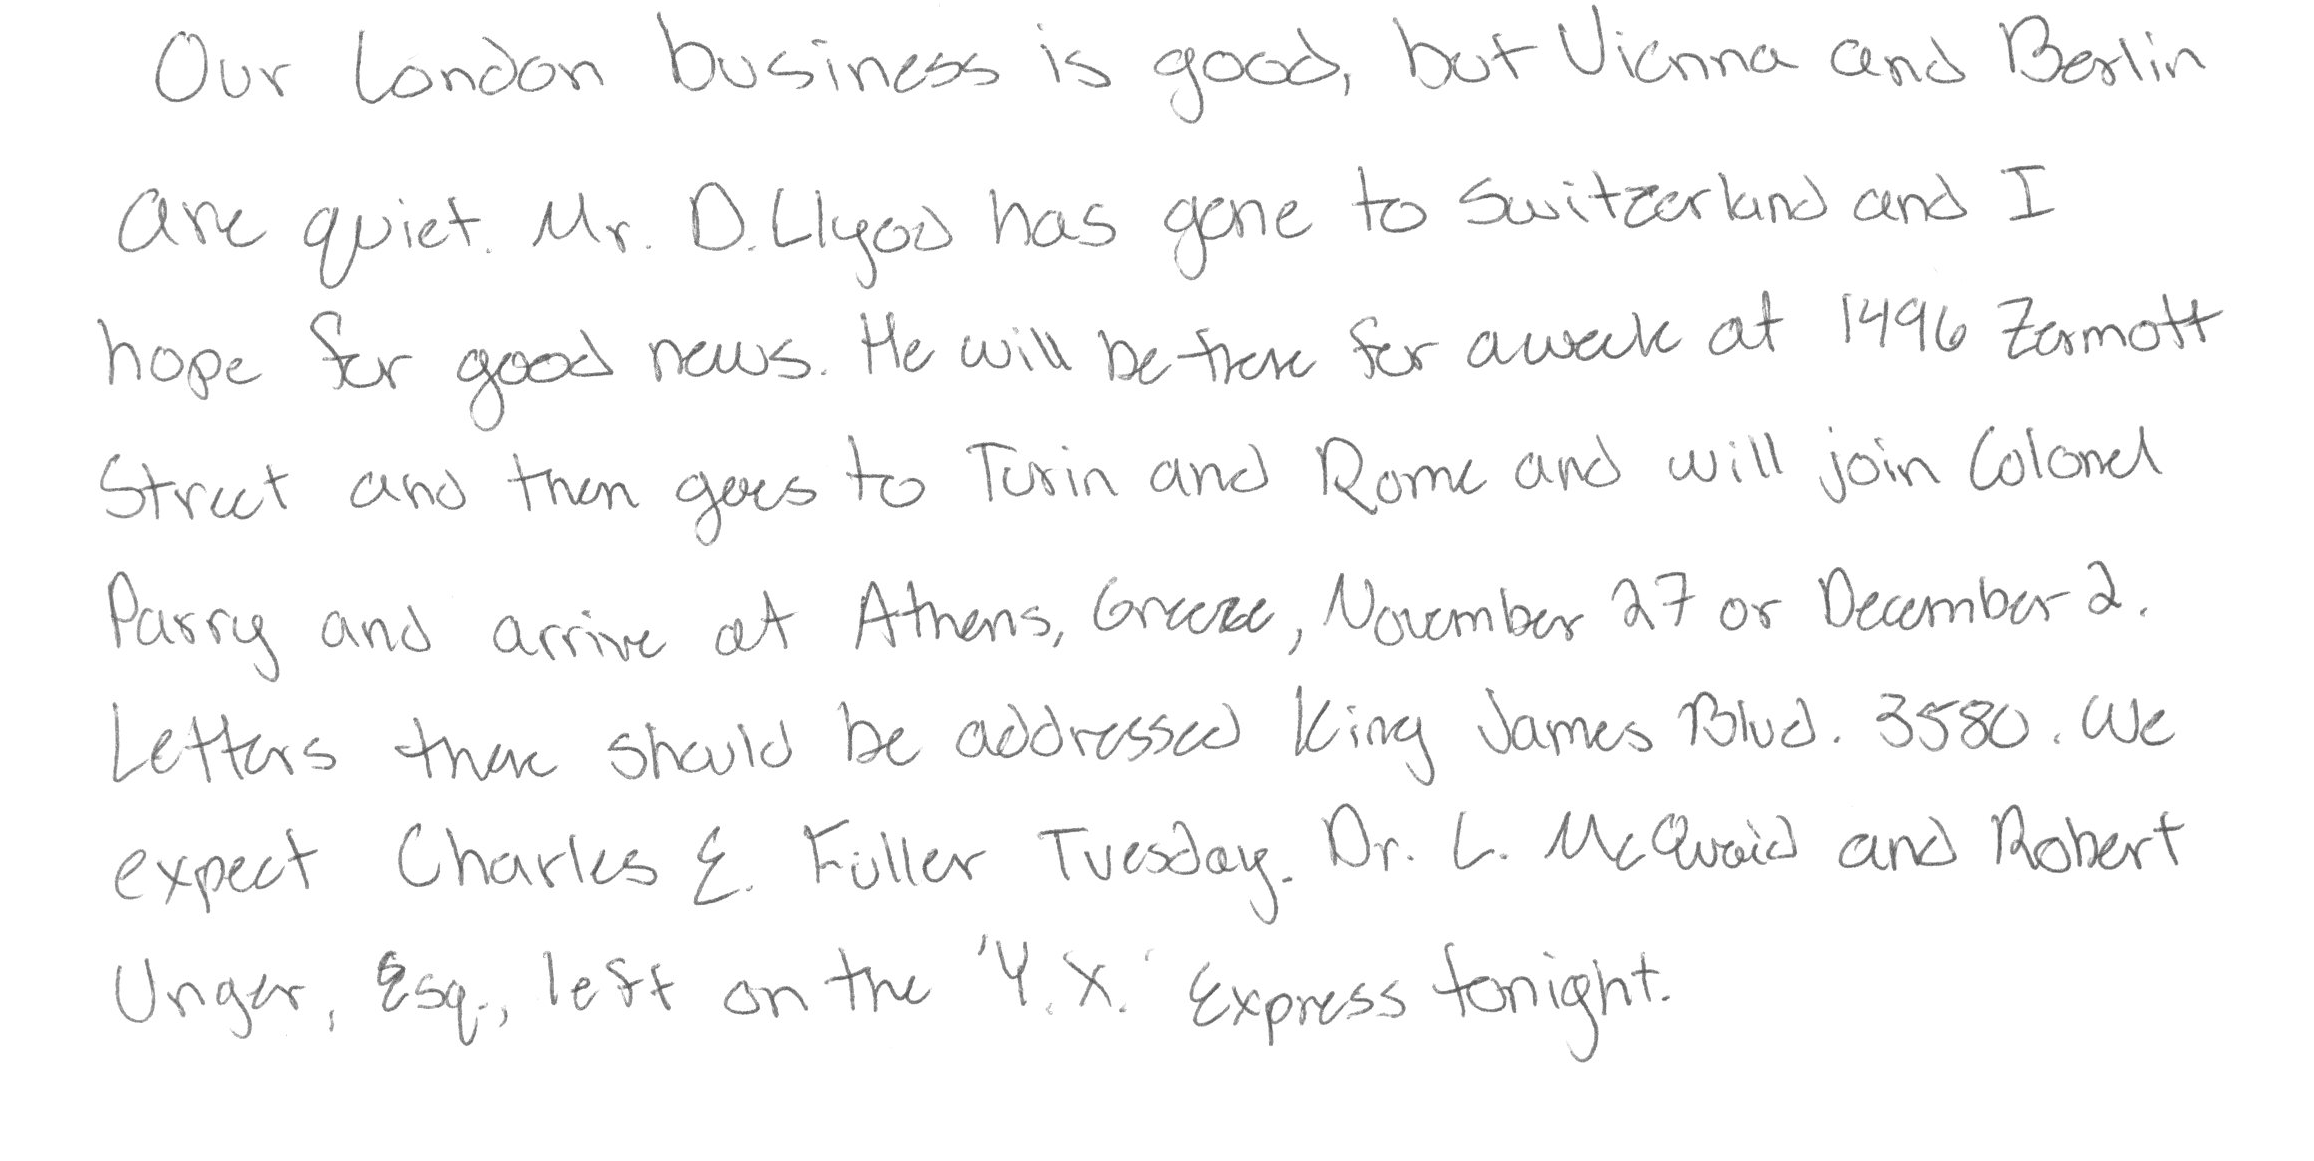 Our London business is good, but Vienna and Berlin
are quiet. Mr. D. Llyod has gone to Switzerland and I
hope for good news. He will be there for a week at 1496 Zermott
Street and then goes to Turin and Rome and will join Colonel
Parry and arrive at Athens, Greece, November 27 or December 2.
Letters there should be addressed King James Blvd. 3580. We
expect Charles E. Fuller Tuesday. Dr. L. McQuaid and Robert
Unger, Esq., left on the 'Y.X.' Express tonight.